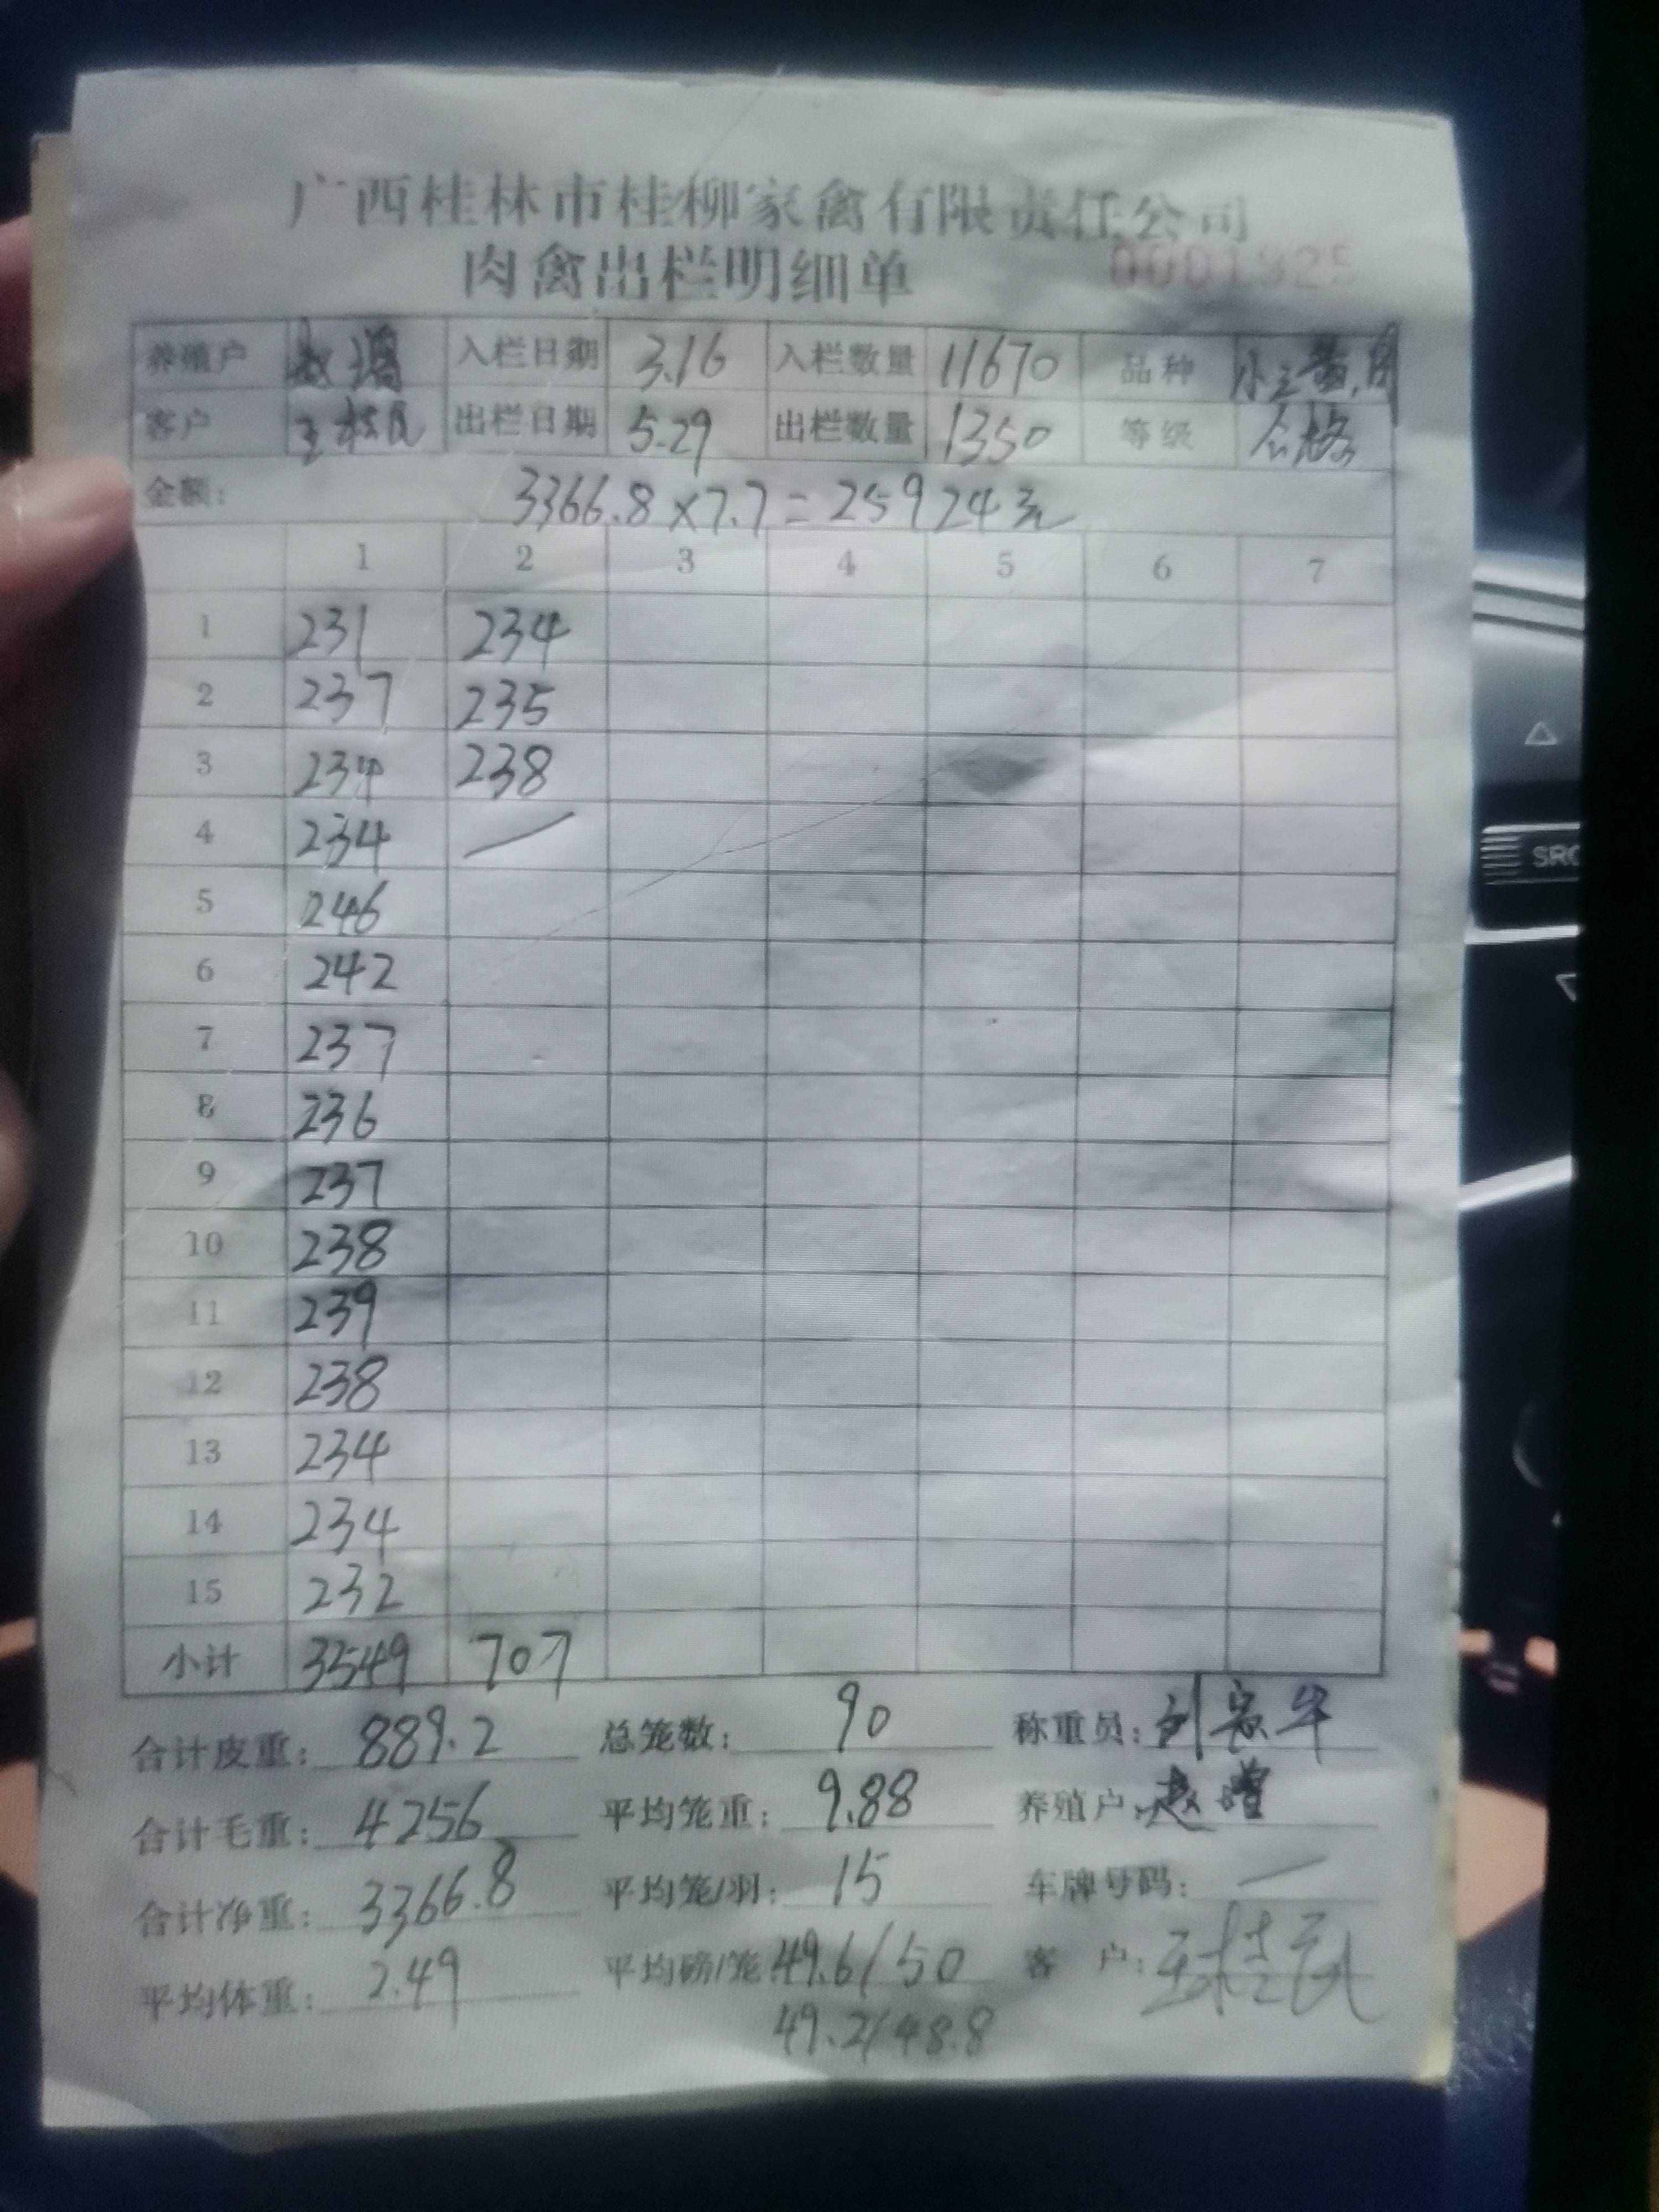 广西桂林市桂柳家禽有限责任公司
肉禽出栏明细单 0001925
养殖户 赵增 入栏日期 3.16 入栏数量 11670 品种
客户 王桂民 出栏日期 5.29 出栏数量 1350 等级 合格
金额: 3366.8×7.7=25924元
1 2 3 4 5 6 7
1 231 234
2 237 235
3 234 238
4 234 —
5 246
6 242
7 237
8 236
9 237
10 238
11 239
12 238
13 234
14 234
15 232
小计 3549 707
合计皮重: 889.2 总笼数: 90 称重员: 刘
合计毛重: 4256 平均笼重: 9.88 养殖户: 赵增
合计净重: 3366.8 平均笼/羽: 15 车牌号码: —
平均体重: 2.49 平均磅/笼 49.6/50 客户: 王桂民
49.2/48.8
SRC